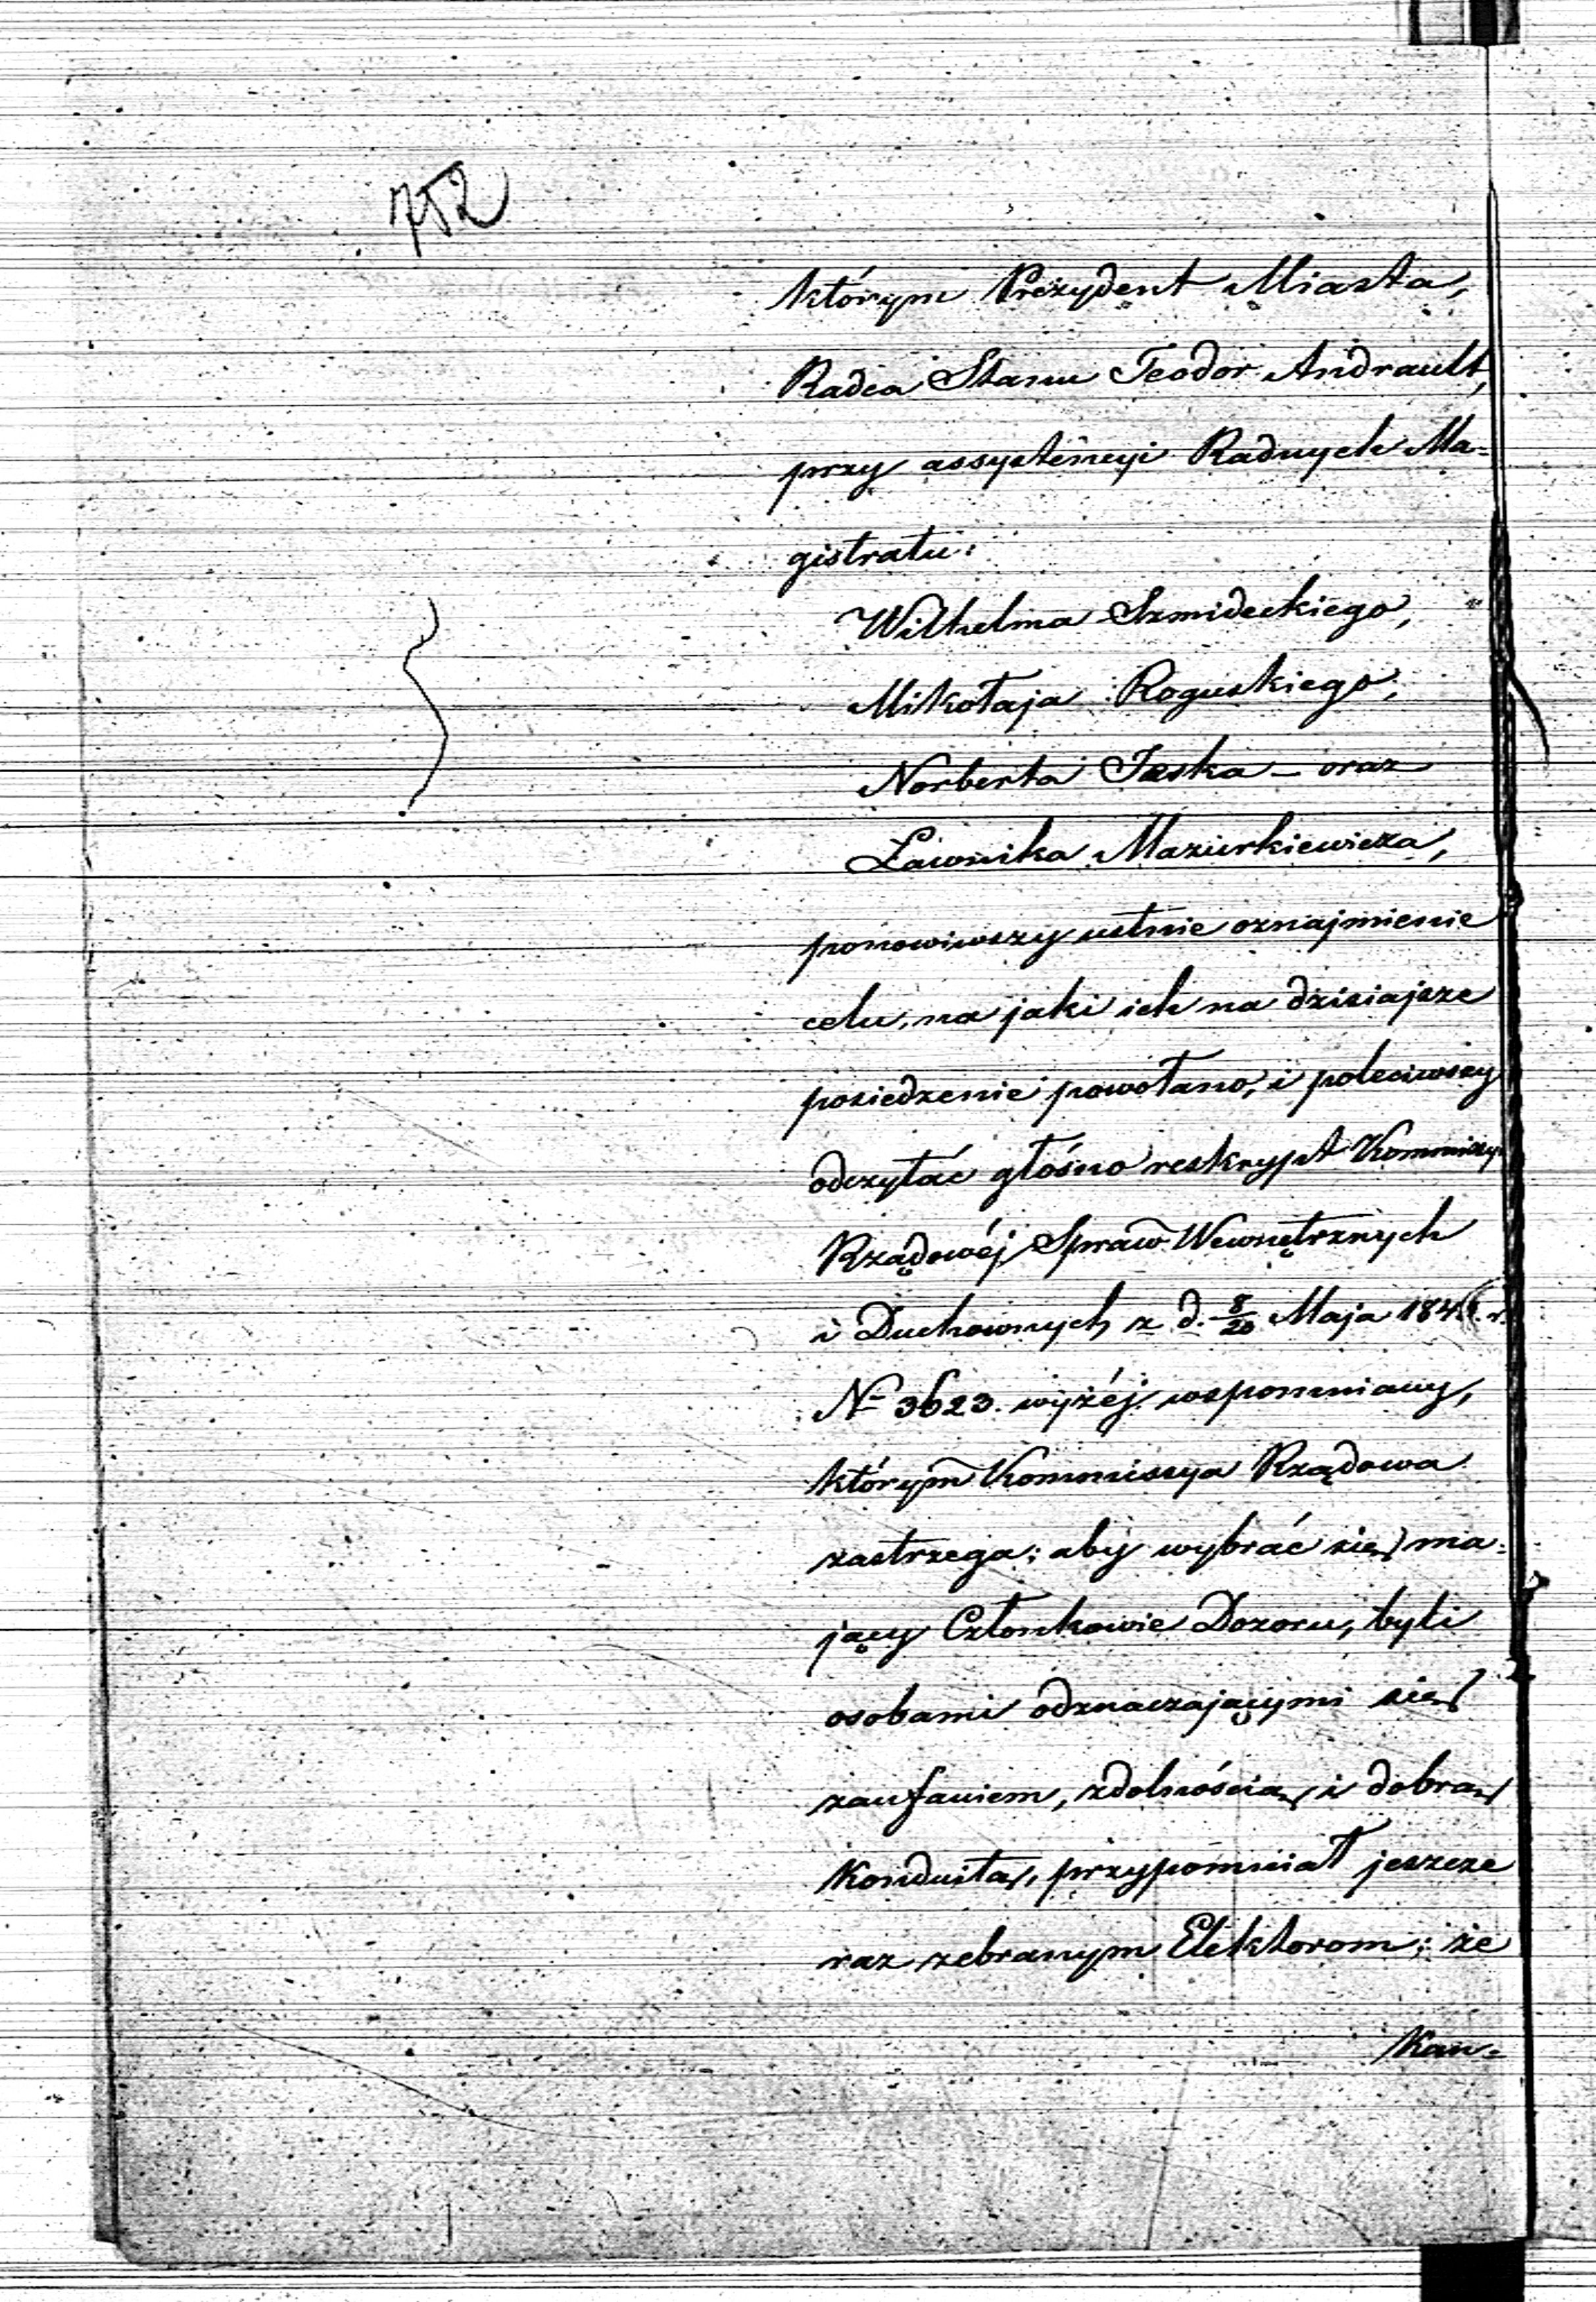 752
którym Prezydent Miasta,
Radca Stanu Teodor Andrault,
przy assystencyi Radnych Ma-
gistratu:
Wilhelma Szmideckiego,
Mikołaja Roguskiego,
Norberta Jeska – oraz
Ławnika Mazurkiewicza,
ponowiwszy ustnie oznajmienie
celu, na jaki ich na dzisiajsze
posiedzenie powołano, i poleciwszy
odczytać głośno reskrypt Kommissyi
Rządowéj Spraw Wewnętrznych
i Duchownych z d. 8/20 Maja
№ 3623. wyżéj wspomniany,
którym Kommissya Rządowa
zastrzega; aby wybrać się ma-
jący Członkowie Dozoru, byli
osobami odznaczającymi się
zaufaniem, zdolnością i dobrą
konduitą, przypomniał jeszcze
raz zebranym Elektorom; że
Kan-